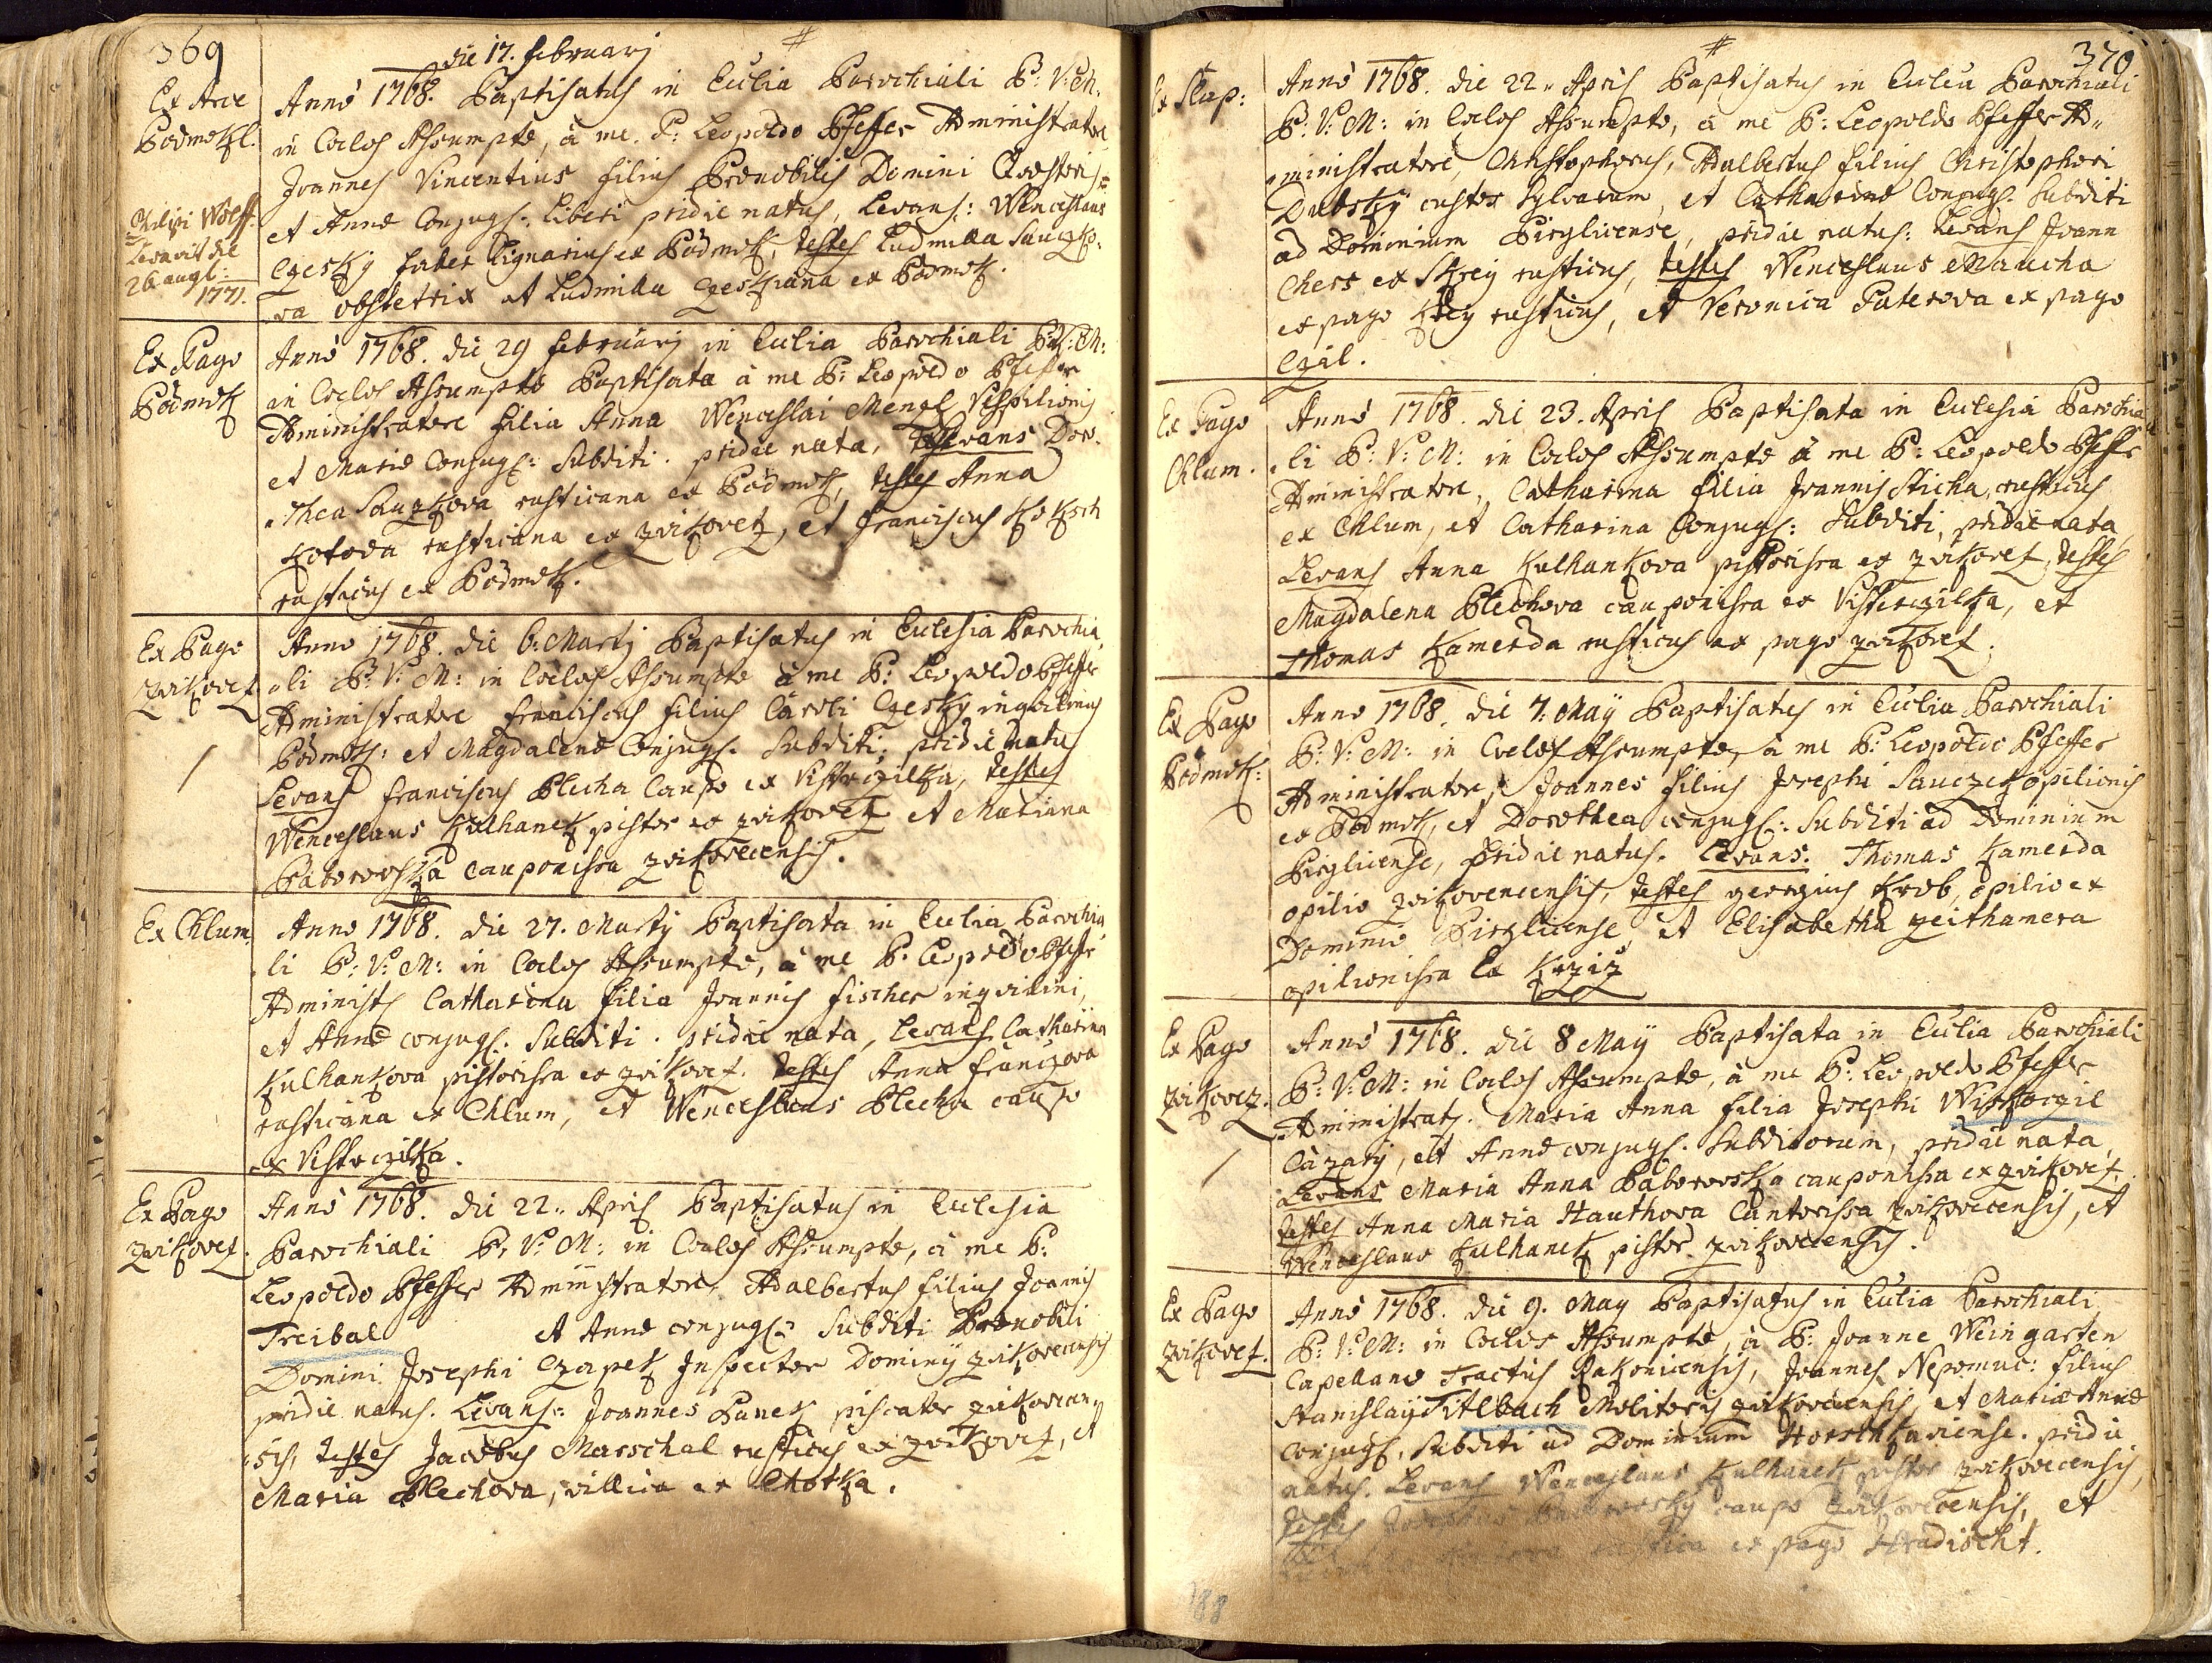 369
die 17. februarj
Ex Arce
Podmokl.
Anno 1768. Baptisatus in Ecclia Parochiali B: V: M:
in Coelos Assumptae, à me P: Leopoldo Pfeffer Administratore
Joannes Vincentius filius Praenobilis Domini
et Annae Conjugs: Liberi pridie natus, Levans: Wenceslaus
Czesky faber lignarius ex Podmok, testes Ludmilla Sauczko-
va obstetrix et Ludmilla Czeskiana ex Podmok.
Philipi Wolff.
Levavit die
26 augt:
1771.
Ex Pago
Podmok
Anno 1768. die 29 februarj in Ecclia Parochiali B: V: M:
in Coelos Assumptae Baptisata à me P: Leopoldo Pfeffer
Administratore filia Anna Wenceslai Mengl Vespilionis
et Mariae Conjugs: Subditi. pridie nata, Levans Doro-
thea Sauczkova rusticana ex Podmok, testes Anna
Kotova rusticana ex zvikovetz, et franciscus
rusticus ex Podmok.
Ex Pago
zvikovet.
Anno 1768. die 6. Martj Baptisatus in Ecclesia Parochia-
li B: V: M: in Coelos Assumptae à me P: Leopoldo Pfeffer
Administratore franciscus filius Caroli Czesky inquilinus
Podmok: et Magdalenae Conjugs. Subditi: pridie natus
Levans franciscus Blecha Caupo ex Vistrczilka, testes
Wenceslaus Kulhanek pistor ex zvikovetz et Mariana
Baborovska cauponissa zvikovecensis.
Ex Chlum.
Anno 1768. die 27. Martj Baptisata in Ecclia Parochia-
li B: V: M: in Coelos Assumptae, à me P: Leopoldo Pfeffer
Administs Catharina filia Joannis fischer inquilini,
et Annae conjugs: Subditi. pridie nata, Levans Catharina
Kulhankova pistorissa ex zvikovet. testes Anna franczova
rusticana ex Chlum, et Wenceslaus Blecha caupo
ex Vistrczilka.
Ex Pago
zvikovet.
Anno 1768. die 22. Aprils Baptisatus in Ecclesia
Parochiali B: V: M: in Coelos Assumptae, à me P:
Leopoldo Pfeffer Administratore, Adalbertus filius Joannis
Treibal et Annae conjugs: Subditi Praenobili
Domini Josephi Czapek Inspector Dominij zvikovecensis
pridie natus. Levans: Joannes Panek piscator zvikovecen-
sis, testes Jacobus Marschal rusticus ex zvikovet, et
Maria Blechova, villica ex Lhotka.
370
Ex Slap:
Anno 1768. die 22. Aprils Baptisatus in Ecclia Parochiali
B: V: M: in Coelos Assumptae, à me P: Leopoldo Pfeffer Ad-
ministratore, Christophorus, Adalbertus filius Christophori
Dubsky custos sylvarum, et Catharinae Conjugs. Subditi
ad Dominium Pirglicense, pridie natus: Levans Joann
Chers ex Skrey rusticus, testes Wenceslaus Maucha
ex pago rusticus, et Veronica Paterova ex pago
Czil.
Ex Pago
Chlum.
Anno 1768. die 23. Aprils Baptisata in Ecclesia Parochia-
li B: V: M: in Coelos Assumptae à me P: Leopoldo Pfeffr
Administratore, Catharina filia Joannis Sticha, rusticus
ex Chlum, et Catharina Conjugs: Subditi, pridie nata,
Levans Anna Kulhankova pistorissa ex zvikovet, testes
Magdalena Blechova cauponissa ex Vistrczilka, et
Thomas Kamerda rusticus ex pago zvikovet.
Ex Pago
Podmok:
Anno 1768. die 7. May Baptisatus in Ecclia Parochiali
B: V: M: in Coelos Assumptae, à me P: Leopoldo Pfeffer
Administrator, Joannes filius Josephi Sauczek opilionis
ex Podmok, et Dorothea conjugs: Subditi ad Dominium
Pirglicense, Pridie natus. Levans. Thomas Kamerda
opilio zvikovencensis, testes georgius Krob, opilio ex
Dominio Pirglicense et Elisabetha zeithamera
opilionissa Ex Krziz
Ex Pago
zvikovez.
Anno 1768. die 8 May Baptisata in Ecclia Parochiali
B: V: M: in Coelos Assumptae, à me P: Leopoldo Pfeffer
Administrats. Maria Anna filia Josephi Wiskoczil
Cazarj, et Annae conjugs. Subditorum, pridie nata,
Levans Maria Anna Baborovska cauponissa ex zvikovet.
testes Anna Maria Hauthova Cantorissa zvikovecensis, et
Wenceslaus Kulhanek pistor zvikovecensis.
Ex Pago
zvikovet.
Anno 1768. die 9. May Baptisatus in Ecclia Parochiali
B: V: M: in Coelos Assumptae, à P: Joanne Weingarten
Capellano Tractus Rakonicensis, Joannes Nepomuc: filius
Stanislay Titlbach Molitoris zvikovecensis, et Mariae Annae
conjugs, Subditi ad Dominium pridie
natus. Levans Wenceslaus Kulhanek pistor zvikovecensis,
testes Josephus caupo zvikovecensis, et
ex pago Hradischt.
188